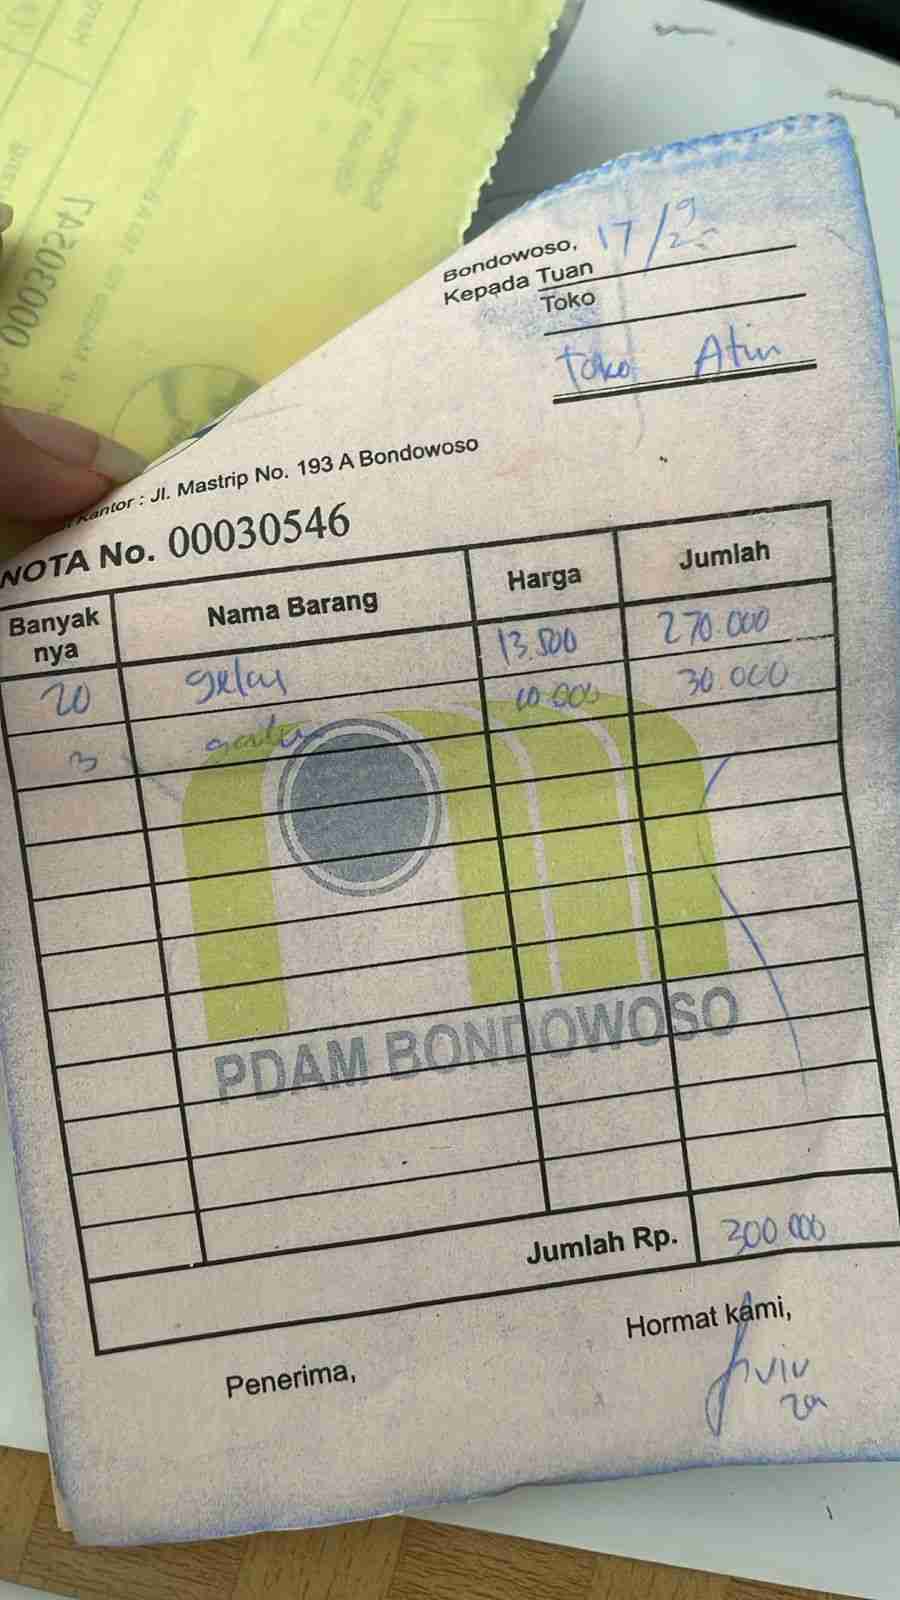 00030547
Bondowoso, 17/9 25
Kepada Tuan
Toko
Toko Atin
Kantor : Jl. Mastrip No. 193 A Bondowoso
NOTA No. 00030546
Banyak nya Nama Barang Harga Jumlah
20 gelas 13.500 270.000
3 10.000 30.000
PDAM BONDOWOSO
Jumlah Rp. 300.000
Hormat kami,
Penerima,